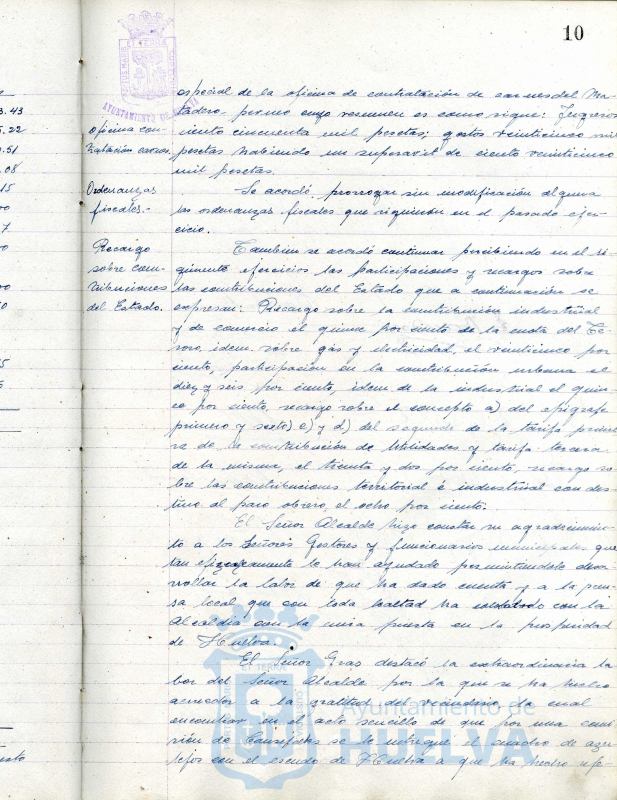 10
especial de la oficina de contratación de carnes del Ma-
tadero, pormo cuyo resumen es como sigue: Ingresos
ciento cincuenta mil pesetas; gastos veinticinco mil
pesetas habiendo un superavit de ciento veinticinco
mil pesetas.
oficina con-
tratación carnes
Ordenanzas
fiscales.-
Se acordó prorrogar sin modificación alguna
las ordenanzas fiscales que rigieron en el pasado ejer-
cicio.
Recargo
sobre con-
tribuciones
del Estado.
Tambien se acordó continuar percibiendo en el si-
guiente ejercicios las participaciones y recargos sobre
las contribuciones del Estado que a continuación se
expresan: Recargo sobre la contribución industrial
y de comercio el quince por ciento de la cuota del Te-
soro, idem sobre gas y electricidad, el veinticinco por
ciento, participación en la contribución urbana el
diez y seis por ciento, idem de la industrial el quin-
ce por ciento, recargo sobre el concepto a) del epigrafe
primero y sexto) c) y d) del segundo de la tarifa prime-
ra de la contribución de Utilidades y tarifa tercera
de la misma, el treinta y dos por ciento, recargo so-
bre las contribuciones territorial é industrial con des-
tino al paro obrero, el ocho por ciento.
El Señor Alcalde hizo constar su agradecimien-
to a los Señores Gestores y funcionarios municipales que
tan eficazmente le han ayudado permitiendole desa-
rrollar la labor de que ha dado cuenta y a la pren-
sa local que con toda lealtad ha colaborado con la
Alcaldia con la mira puesta en la prosperidad
de Huelva.
El Señor Gras destacó la extraordinaria la-
bor del Señor Alcalde por la que se ha hecho
acreedor a la gratitud del vecindario la cual
en el acto sencillo de que por una comi-
sión de se le entregue el cuadro de azu-
lejos con el escudo de Huelva a que ha hecho refe-
AYUNTAMIENTO DE
Ayuntamiento de
HUELVA